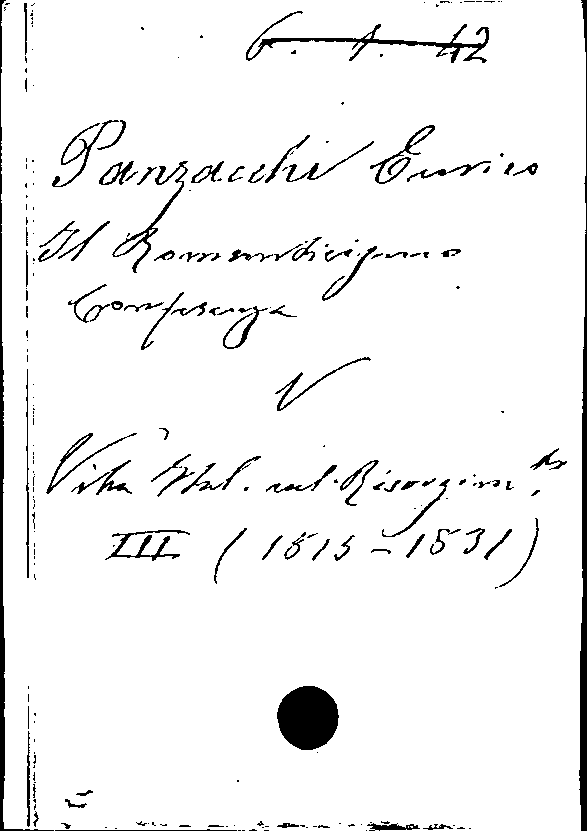 6. 1. 42
Panzacchi Enrico
Il Romanticismo
Conferenza
V
Vita Ital. nel Risorgim.to
III (1815-1831)